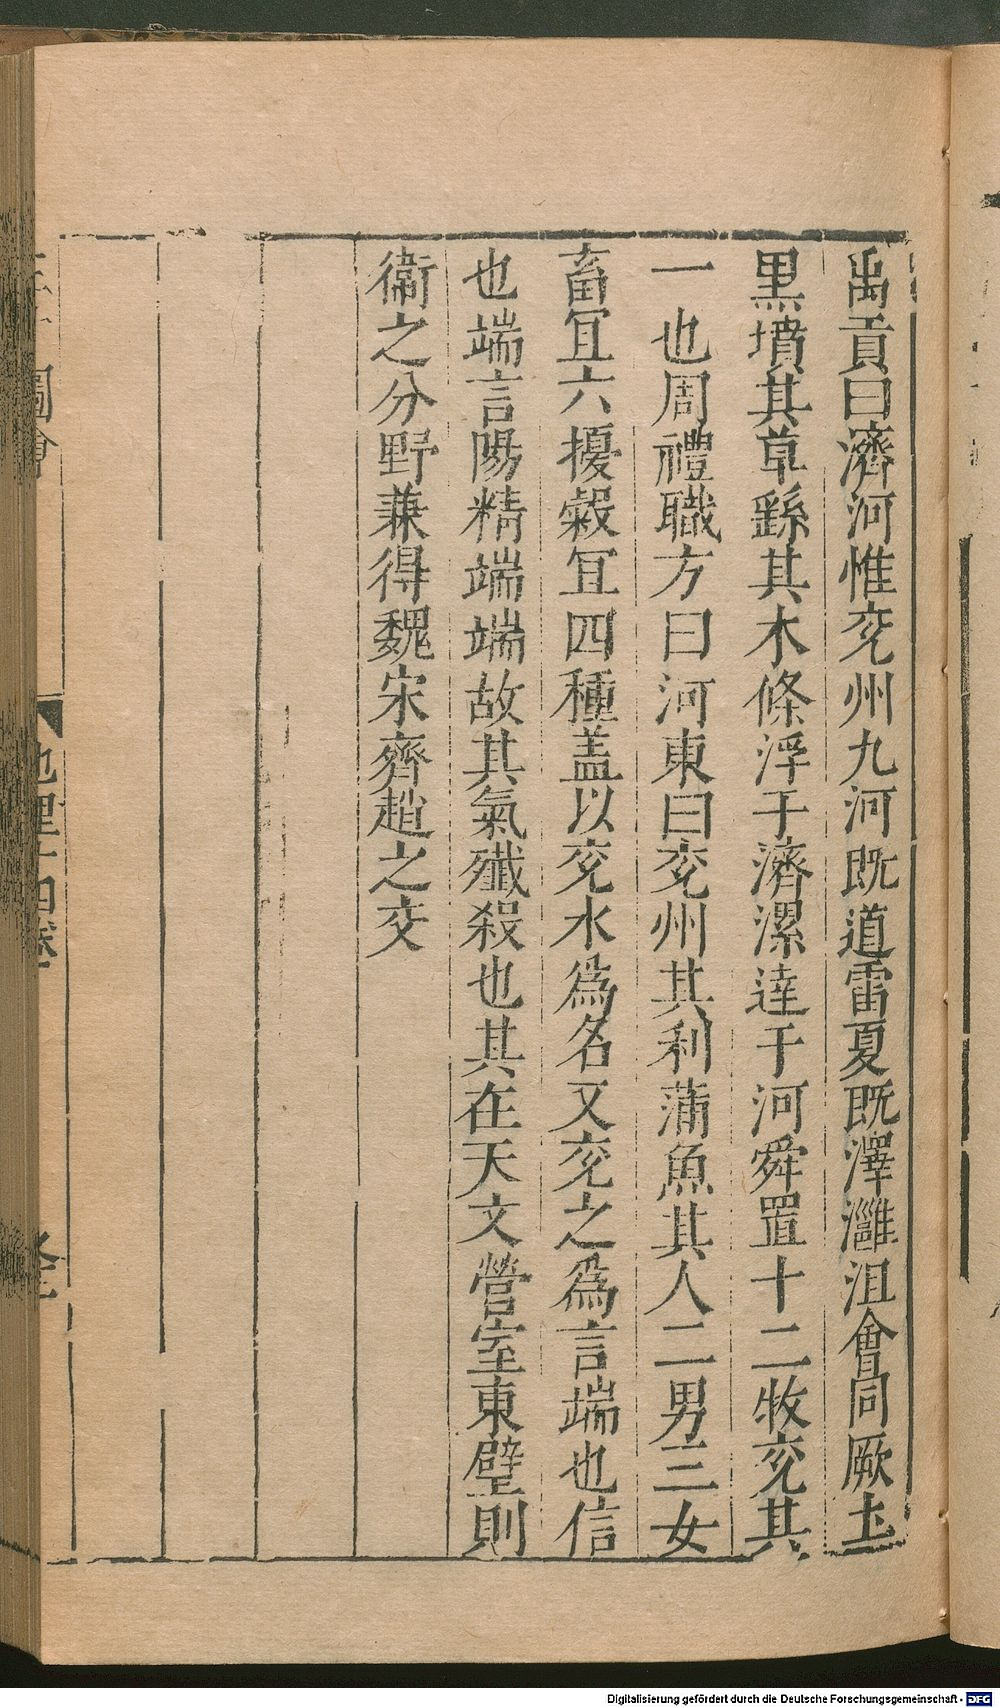 禹貢曰濟河惟兖州九河既道雷夏既澤灉沮會同厥土
黑墳其草繇其木條浮于濟漯達于河舜置十二牧兖其
一也周禮職方曰河東曰兖州其利蒲魚其人二男三女
畜冝六擾穀冝四種盖以兖水爲名又兖之爲言端也信
也端言陽精端端故其氣殲殺也其在天文營室東壁則
衞之分野兼得魏宋齊趙之交
圖會
地理十四卷
Digitalisierung gefördert durch die Deutsche Forschungsgemeinschaft - DFG